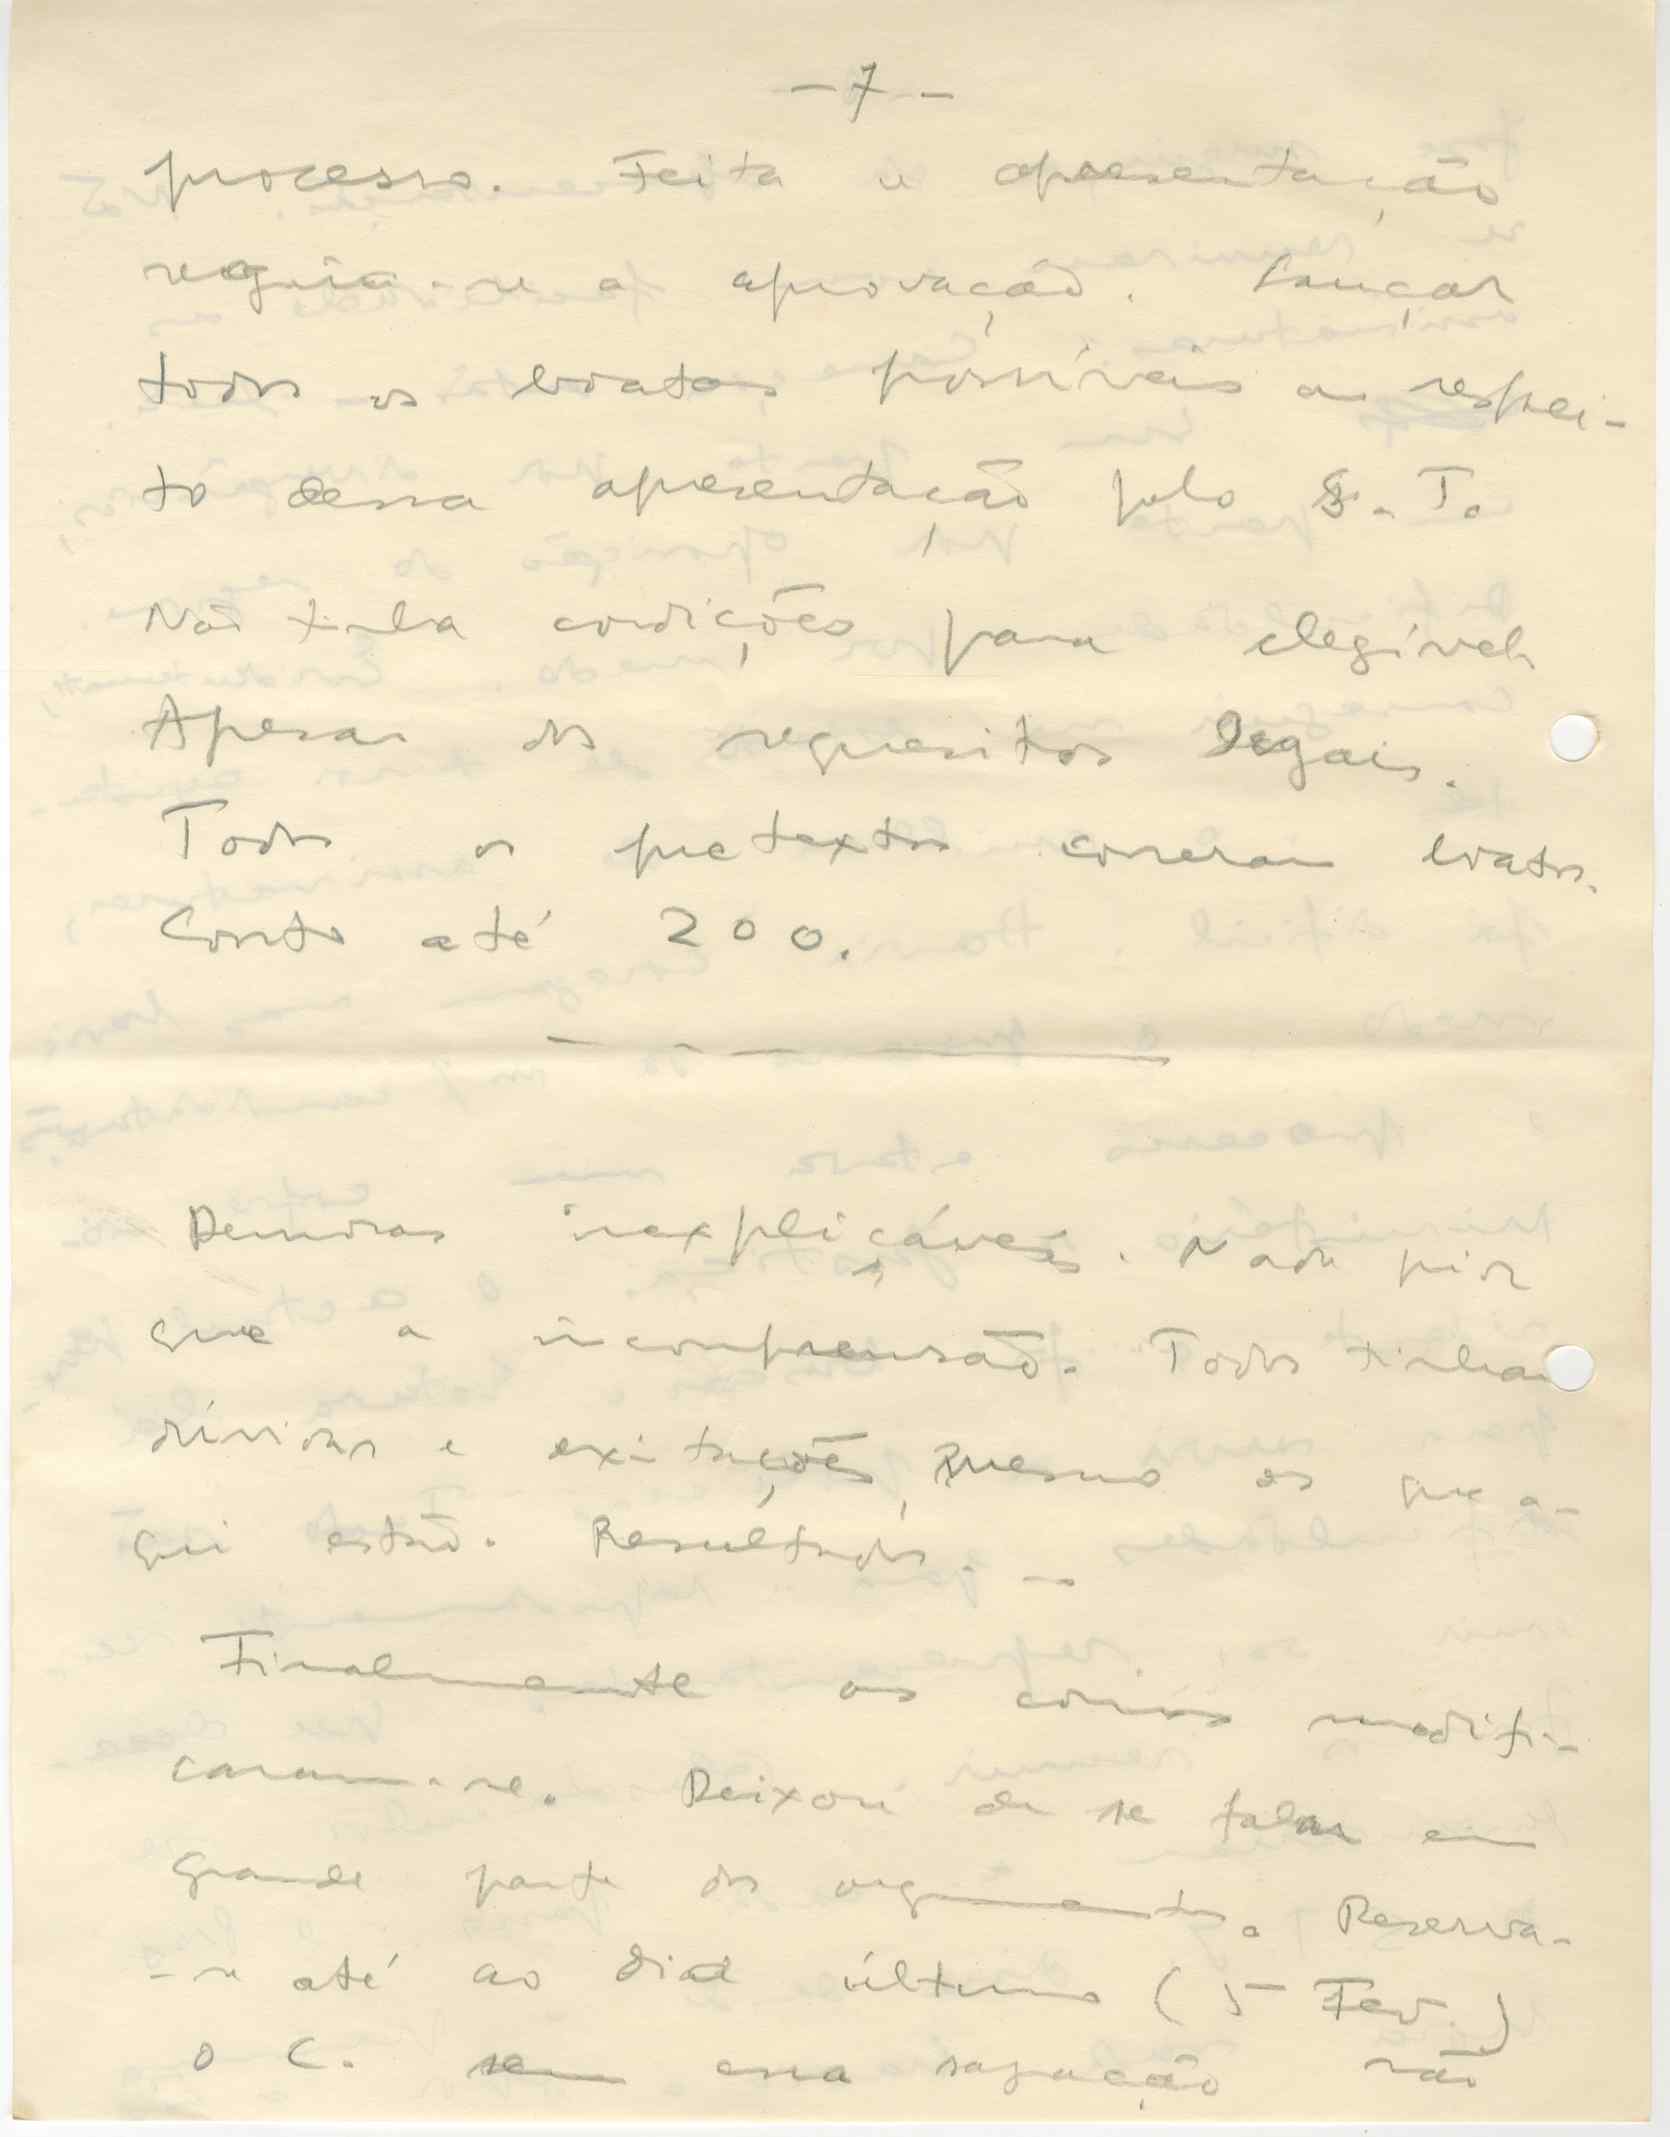 - 7 -
processo. Feita a apresentação
seguia-se a aprovação. Lançar
todos os boatos possíveis a respei-
to dessa apresentação pelo S. T.
Não tinha condições para elegível
Apesar dos requesitos legais.
Todos os pretextos correram boatos.
Conto até 200.
Demoras inexplicáveis. Nada pior
que a incompreensão. Todos tinham
dúvidas e exitações, mesmo os que a-
qui estão. Resultados. -
Finalmente as coisas modifi-
caram-se. Deixou de se falar em
grande parte dos argumentos. Reserva-
-se até ao dia último (5 Fev.)
o C. sem essa não